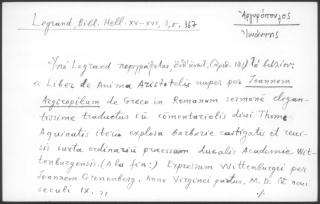 Legrand, Bibl. Hell. XV-XVI, 3, σ. 367
Ἀργυρόπουλος
Ἰωάννης
Ὑπὸ Legrand περιγράφεται, τὸ βιβλίον:
Liber de Anima Aristotelis nuper per Joannem
Argiropilum de Greco in Romanum sermonē elegan-
tissime traductus cū comentariolis divi Thome
Aquinatis iterū explosa barbarie castigatis et revi-
sis iuxta ordinariū processum ducalis Academie Wit-
tenburgensis. (A la fin:) Expressum Wittenburgii per
Joannem Gronenberg. Anno Virginei partus, M. D. et novi
seculi IX. "